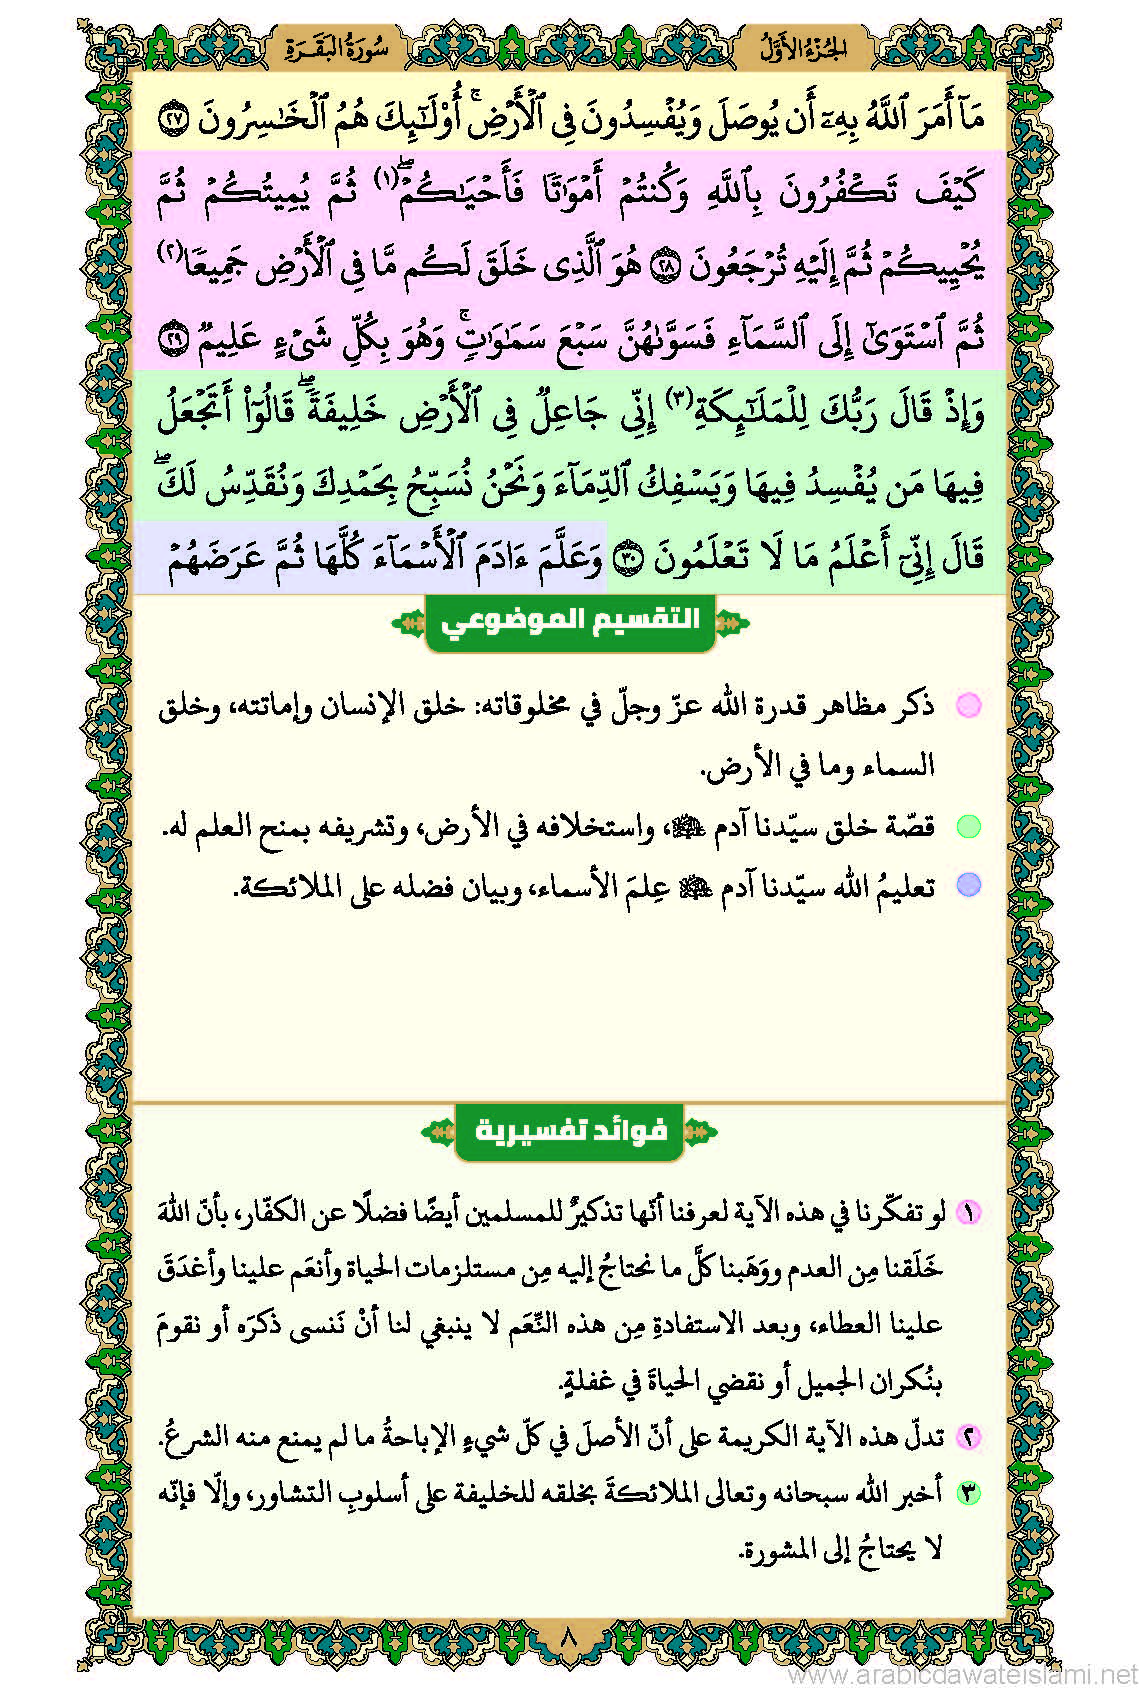 الجُزْءُ الأَوَّلُ
سُورَةُ البَقَرَةِ
مَآ أَمَرَ ٱللَّهُ بِهِۦٓ أَن يُوصَلَ وَيُفْسِدُونَ فِى ٱلْأَرْضِ ۚ أُوْلَـٰٓئِكَ هُمُ ٱلْخَـٰسِرُونَ ٢٧
كَيْفَ تَكْفُرُونَ بِٱللَّهِ وَكُنتُمْ أَمْوَٰتًا فَأَحْيَـٰكُمْ ۖ (١) ثُمَّ يُمِيتُكُمْ ثُمَّ
يُحْيِيكُمْ ثُمَّ إِلَيْهِ تُرْجَعُونَ ٢٨ هُوَ ٱلَّذِى خَلَقَ لَكُم مَّا فِى ٱلْأَرْضِ جَمِيعًا (٢)
ثُمَّ ٱسْتَوَىٰٓ إِلَى ٱلسَّمَآءِ فَسَوَّىٰهُنَّ سَبْعَ سَمَـٰوَٰتٍ ۚ وَهُوَ بِكُلِّ شَىْءٍ عَلِيمٌ ٢٩
وَإِذْ قَالَ رَبُّكَ لِلْمَلَـٰٓئِكَةِ (٣) إِنِّى جَاعِلٌ فِى ٱلْأَرْضِ خَلِيفَةً ۖ قَالُوٓاْ أَتَجْعَلُ
فِيهَا مَن يُفْسِدُ فِيهَا وَيَسْفِكُ ٱلدِّمَآءَ وَنَحْنُ نُسَبِّحُ بِحَمْدِكَ وَنُقَدِّسُ لَكَ ۖ
قَالَ إِنِّىٓ أَعْلَمُ مَا لَا تَعْلَمُونَ ٣٠ وَعَلَّمَ ءَادَمَ ٱلْأَسْمَآءَ كُلَّهَا ثُمَّ عَرَضَهُمْ
التقسيم الموضوعي
ذكر مظاهر قدرة الله عزّ وجلّ في مخلوقاته: خلق الإنسان وإماتته، وخلق
السماء وما في الأرض.
قصّة خلق سيّدنا آدم ﷺ، واستخلافه في الأرض، وتشريفه بمنح العلم له.
تعليمُ الله سيّدنا آدم ﷺ عِلمَ الأسماء، وبيان فضله على الملائكة.
فوائد تفسيرية
١ لو تفكّرنا في هذه الآية لعرفنا أنّها تذكيرٌ للمسلمين أيضًا فضلًا عن الكفّار، بأنّ اللهَ
خَلَقنا مِن العدم ووَهَبنا كلَّ ما نحتاجُ إليه مِن مستلزمات الحياة وأنعَم علينا وأغدَقَ
علينا العطاء، وبعد الاستفادةِ مِن هذه النِّعَم لا ينبغي لنا أنْ نَنسى ذكرَه أو نقومَ
بنُكران الجميل أو نقضي الحياةَ في غفلةٍ.
٢ تدلّ هذه الآية الكريمة على أنّ الأصلَ في كلّ شيءٍ الإباحةُ ما لم يمنع منه الشرعُ.
٣ أخبر الله سبحانه وتعالى الملائكةَ بخلقه للخليفة على أسلوبِ التشاور، وإلّا فإنّه
لا يحتاجُ إلى المشورة.
٨
www.arabicdawateislami.net